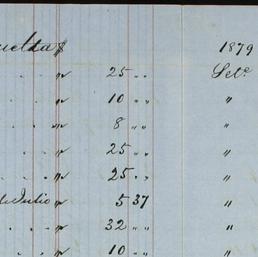 uelta $ 1879
. . . " 25 " " Set.e
. . . " 10 " " "
. . . " 8 " " "
. . . " 25 " " "
. . . " 25 " " "
de Julio " 5 37 "
. . " 32 " " "
. . . " 10 " " "